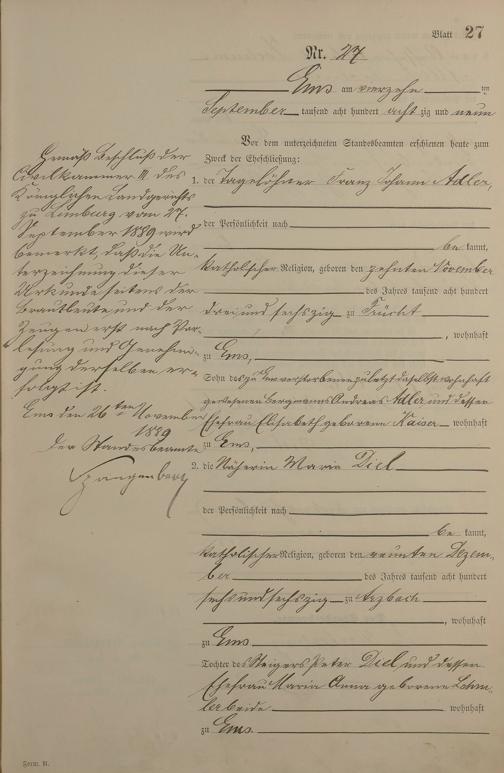 Blatt 27
Nr. 27
Ems am vierzehn ten
September tausend acht hundert acht zig und neun
Vor dem unterzeichneten Standesbeamten erschienen heute zum
Zweck der Eheschließung:
1. der Tagelöhner Franz Johann Adler,
der Persönlichkeit nach
be kannt,
katholischer Religion, geboren den zehnten November
des Jahres tausend acht hundert
drei und sechszig zu Frücht
, wohnhaft
zu Ems,
Sohn des zu Ems verstorbenen zuletzt daselbst wohnhaft
gewesenen Bergmanns Andreas Adler und dessen
Ehefrau Elisabeth geborenen Kaiser wohnhaft
zu Ems,
2. die Näherin Maria Diel
der Persönlichkeit nach
be kannt,
katholischer Religion, geboren den neunten Dezem-
ber des Jahres tausend acht hundert
sechs und sechszig zu Arzbach
, wohnhaft
zu Ems
Tochter des Steigers Peter Diel und dessen
Ehefrau Maria Anna geborene
beide wohnhaft
zu Ems.
Gemäß Beschluß der
Civilkammer III des
Königlichen Landgerichts
zu Limburg vom 27.
September 1889 wird
bemerkt, daß die Un-
terzeichnung dieser
Urkunde seitens der
Brautleute und der
Zeugen erst nach Vor-
lesung und Genehmi-
gung derselben er-
folgt ist.
Ems den 26ten November
1889
Der Standesbeamte
Spangenberg
Form. B.